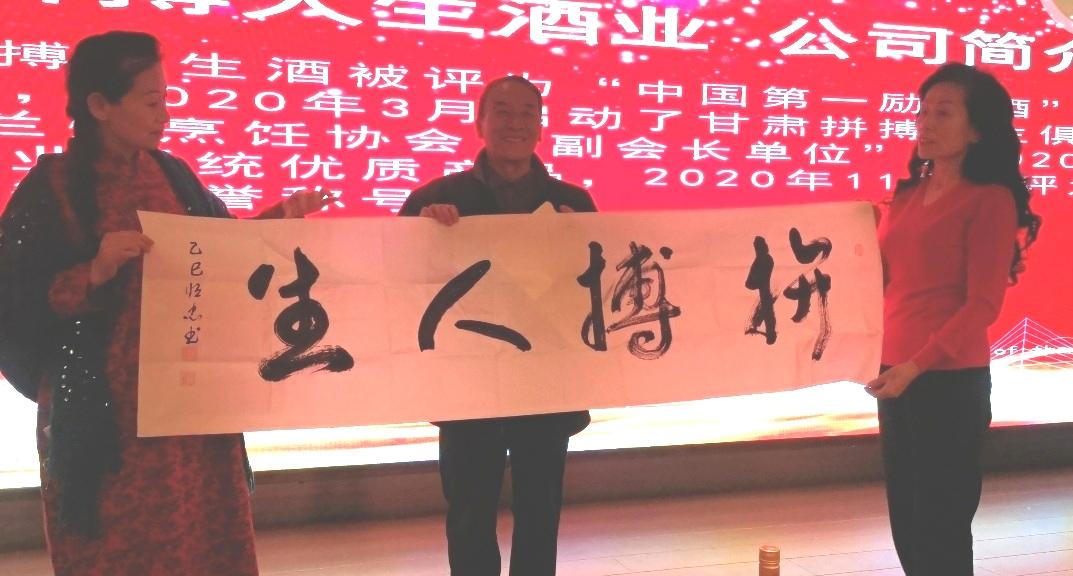 搏人生酒业 公司简介
搏 生酒被评为“中国第一励 酒”
，020年3月启动了甘肃拼搏 生俱
兰 烹饪协会“副会长单位” 020
业 统优质 ，2020年11 评
誉称号
拼搏人生
乙巳恒忠书
of the